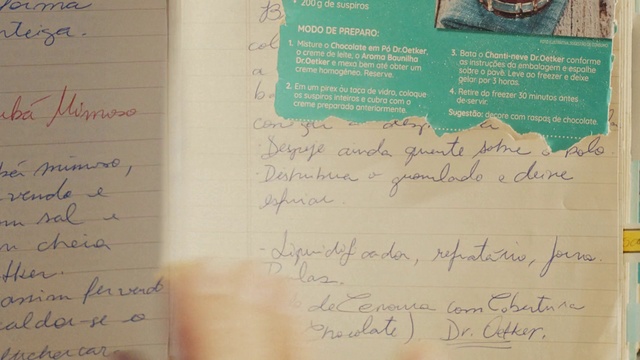 forma
nteiga.
ubá Mimoso
bá mimoso,
vendo e
om sal e
cheia
etker.
assim fervendo
caldar-se o
200 g de suspiros
MODO DE PREPARO:
1. Misture o Chocolate em Pó Dr.Oetker,
o creme de leite, o Aroma Baunilha
Dr.Oetker e mexa bem até obter um
creme homogêneo. Reserve.
2. Em um pirex ou taça de vidro, coloque
os suspiros inteiros e cubra com o
creme preparado anteriormente.
3. Bata o Chanti-neve Dr.Oetker conforme
as instruções da embalagem e espalhe
sobre o pavê. Leve ao freezer e deixe
gelar por 3 horas.
4. Retire do freezer 30 minutos antes
de servir.
Sugestão: decore com raspas de chocolate.
Despeje ainda quente sobre o bolo
Distribua o granulado e deixe
esfriar.
- Liquidificador, refratário, forno.
de Cenoura com Cobertura
Chocolate) Dr. Oetker.